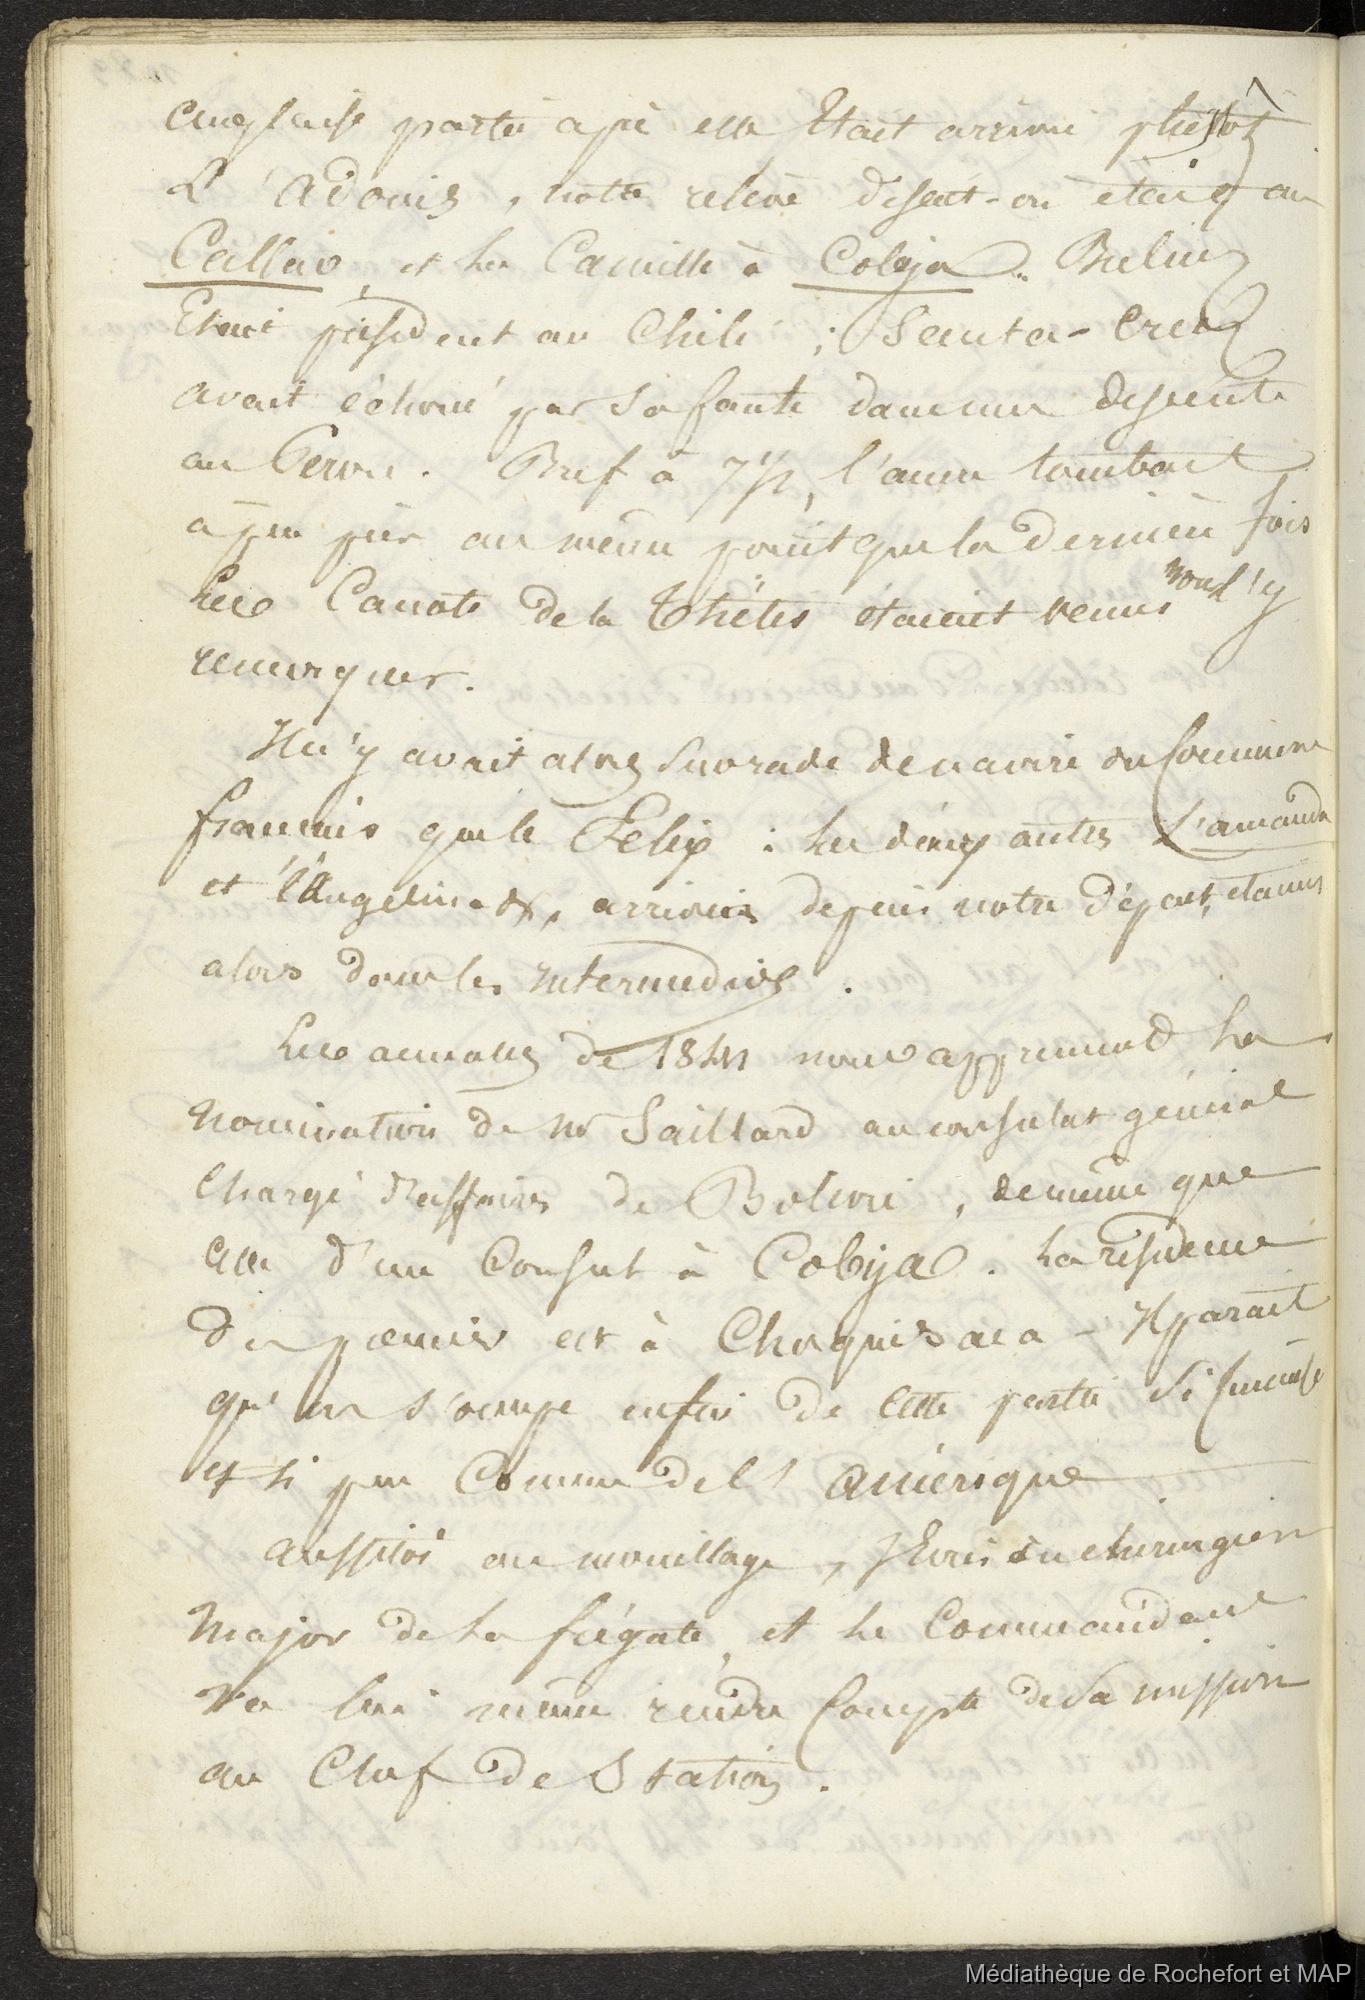 anglaise partie après elle était arrivée plustôt
L'Adonis, notre relève disait-on était au
Callao, et la Camille à Cobija. Bulnes
Etait président au Chili; Santa-Cruz
avait échoué par sa faute dans une descente
au Pérou. Bref à 7 1/2, l'ancre tombait
à peu près au même point que la dernière fois
Les Canots de la Thétis étaient venus nous l'y
remorquer.
Il n'y avait alors sur rade de navire du Commerce
français que le Felix: les deux autres L'amanda
et l'Angelina, arrivées depuis notre départ, étaient
alors dans les intermédios.
Les annales de 1841 nous apprennent la
nomination de Mr Saillard au consulat général
Chargé d'affaires de Bolivie, de même que
celle d'un Consul à Cobija. La résidence
du premier est à Choquisaca - Il paraît
qu'on s'occupe enfin de cette partie si
et si peu Connue de l'Amérique
Aussitôt au mouillage, du chirurgien
Major de la frégate, et le Commandant
va lui même rendre Compte de sa mission
au Chef de Station.
Médiathèque de Rochefort et MAP